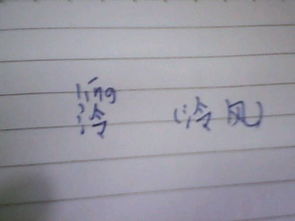 líng
泠 (泠风)